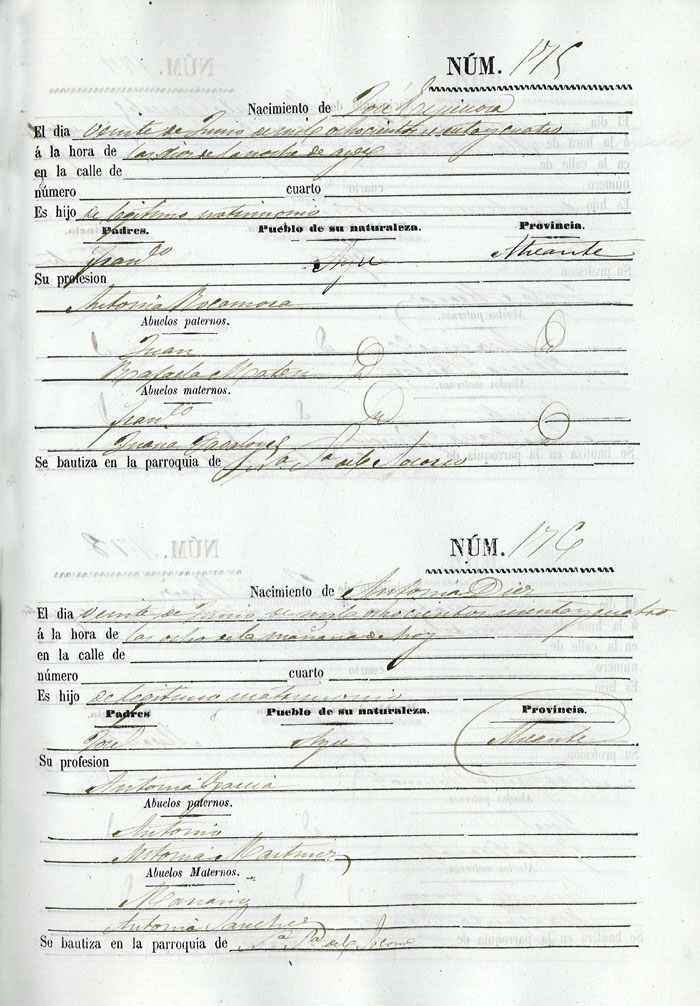 NÚM. 175
Nacimiento de José Espinosa
El dia veinte de Junio de mil ochocientos sesenta y cuatro
á la hora de las diez de la noche de ayer
en la calle de
número cuarto
Es hijo de legitimo matrimonio
Padres. Pueblo de su naturaleza. Provincia.
Fran.co Aspe Alicante
Su profesion
Antonia Rocamora
Abuelos paternos.
Juan id
Rafaela id
Abuelos maternos.
Fran.co id
Juana id
Se bautiza en la parroquia de Ntra. Sra. del Socorro
NÚM. 176
Nacimiento de Antonia Diez
El dia veinte de Junio de mil ochocientos sesenta y cuatro
á la hora de las ocho de la mañana de hoy
en la calle de
número cuarto
Es hijo de legitimo matrimonio
Padres Pueblo de su naturaleza. Provincia.
José Aspe Alicante
Su profesion
Antonia Garcia
Abuelos paternos.
Antonio
Antonia Martinez
Abuelos Maternos.
Mariano
Antonia Sanchez
Se bautiza en la parroquia de Ntra. Sra. del Socorro